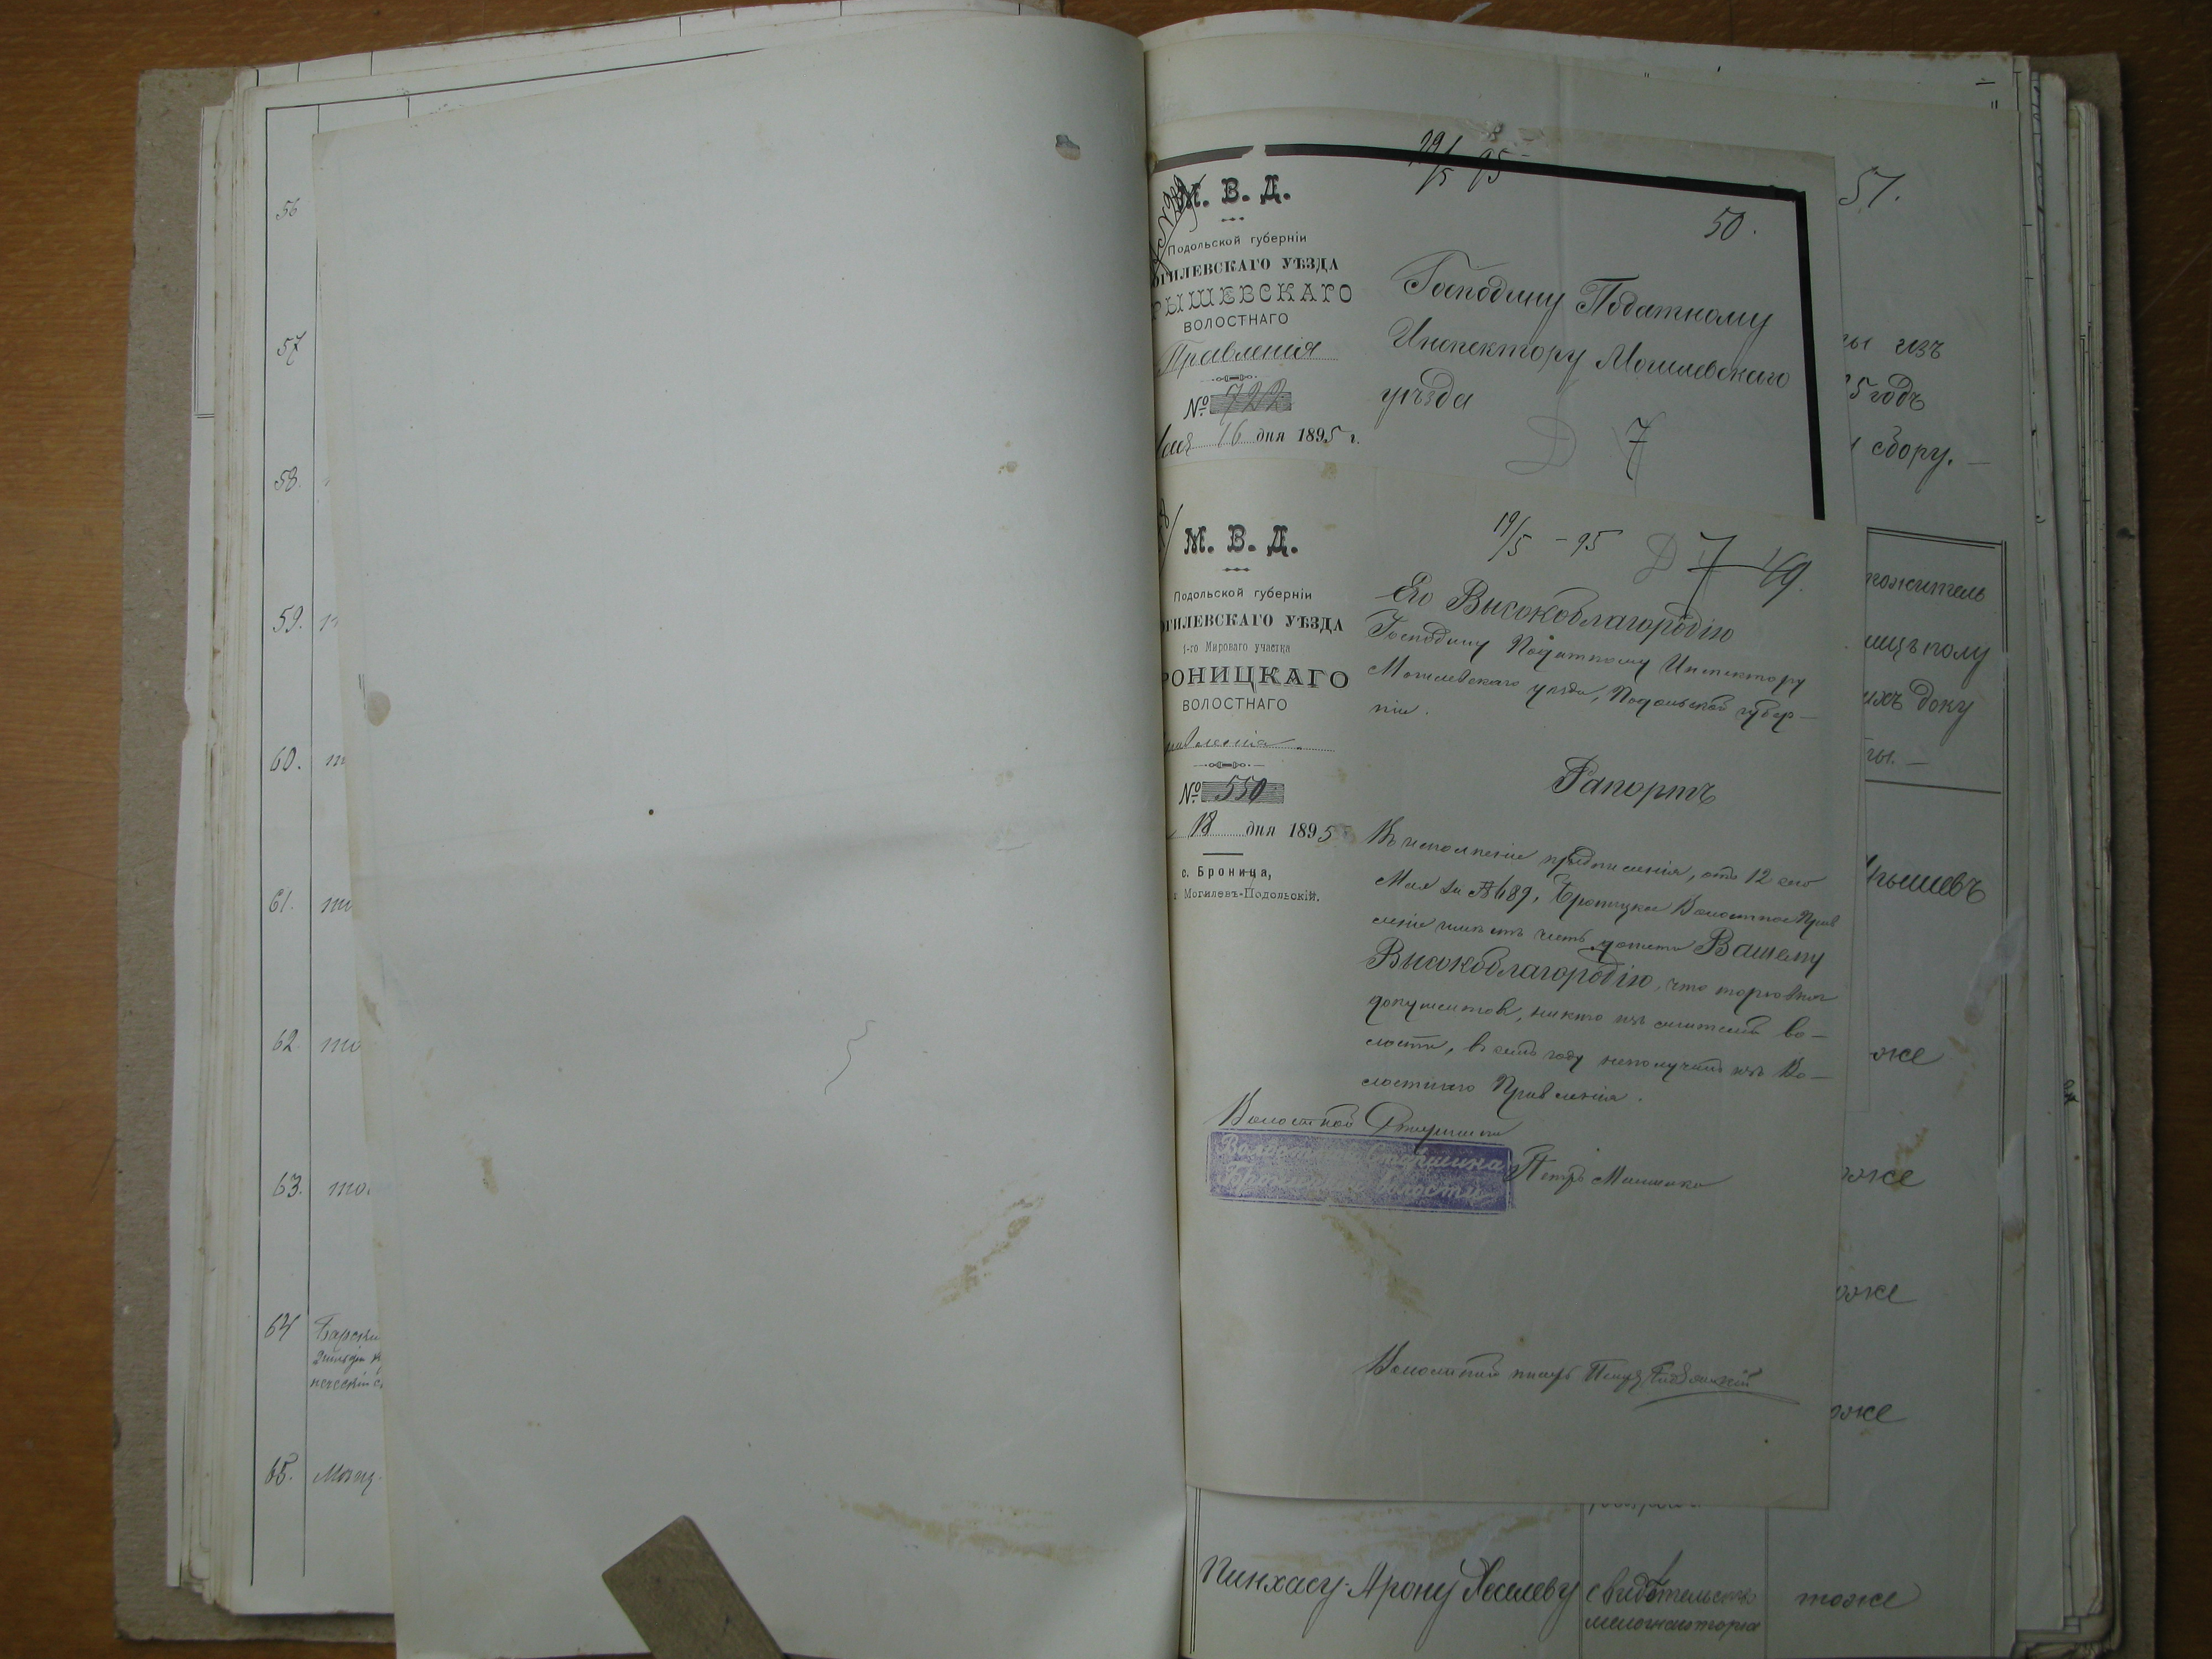 56
57
58.
59.
60.
61.
62
63.
64
65.
29/5 95
М. В. Д.
50.
Подольской губерніи
ОГИЛЕВСКАГО УѢЗДА
РЫШЕВСКАГО
ВОЛОСТНАГО
Правленія
№ 722
16 дня 1895 г.
Господину Податному
Инспектору Могилевскаго
уѣзда
Д 7
19/5 - 95 Д 7 49.
М. В. Д.
Подольской губерніи
ОГИЛЕВСКАГО УѢЗДА
1-го Мироваго участка
РОНИЦКАГО
ВОЛОСТНАГО
авленія.
№ 550
18 дня 1895
с. Броница,
Могилевъ-Подольскій.
Его Высокоблагородію
Господину Податному Инспектору
Могилевскаго уѣзда, Подольской губер-
ніи.
Рапортъ
Въ исполненіе предписанія, отъ 12 сего
Мая за № 689, Броницкое Волостное Прав
леніе имѣетъ честь донести Вашему
Высокоблагородію, что торговыхъ
документов, никто изъ жителей во-
лости, въ семъ году неполучалъ изъ Во-
лостнаго Правленія.
Волостной Старшина
Волостной Старшина
Броницкой волости
Петръ
Волостной писарь
51.
ы изъ
5 годъ
сбору. —
ожитель
ихъ доку
ты. —
рышевъ
оже
оже
оже
оже
Пинхасу-Арону Хаселеву свидѣтельство тоже
мелочнаго торга